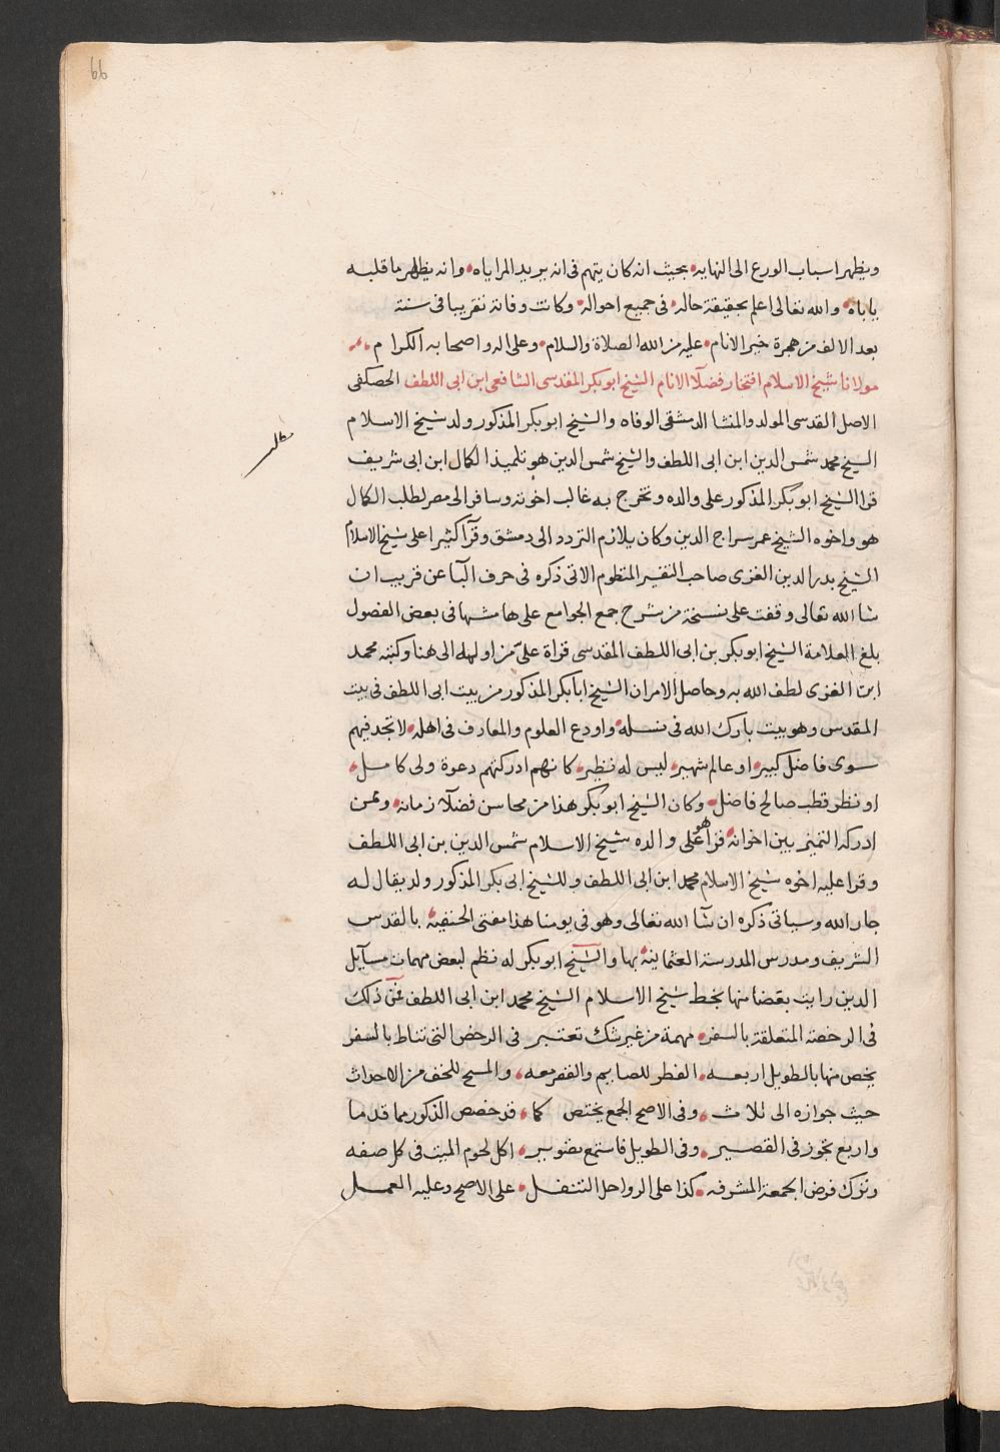 66
ويظهر اسباب الورع الى النهاية بحيث انه كان يتهم فى انه يريد المراياه وانه يظهر ما قلبه
ياباه والله تعالى اعلم بحقيقة حاله فى جميع احواله وكانت وفاته تقريبا فى سنة
بعد الالف من هجرة خير الانام عليه من الله الصلاة والسلام وعلى اله واصحابه الكرام
مولانا شيخ الاسلام افتخار فضلآ الانام الشيخ ابو بكر المقدسى الشافعى ابن ابى اللطف الحصكفى
الاصل القدسى المولد والمنشا الدمشقى الوفاه والشيخ ابو بكر المذكور ولد شيخ الاسلام
الشيخ محمد شمس الدين ابن ابى اللطف والشيخ شمس الدين هو تلميذ الكمال ابن ابى شريف
مطلب
قرا الشيخ ابو بكر المذكور على والده وتخرج به غالب اخوته وسافر الى مصر لطلب الكمال
هو واخوه الشيخ عمر سراج الدين وكان يلازم التردد الى دمشق وقرآ كثيرا على شيخ الاسلام
الشيخ بدر الدين الغزى صاحب التفسير المنظوم الاتى ذكره فى حرف البآ عن قريب ان
شا الله تعالى وقفت على نسخة من شرح جمع الجوامع على هامشها فى بعض الفصول
بلغ العلامة الشيخ ابو بكر بن ابى اللطف المقدسى قراة علىّ من اوله الى هنا وكتبه محمد
ابن الغزى لطف الله به وحاصل الامر ان الشيخ ابا بكر المذكور من بيت ابى اللطف فى بيت
المقدس وهو بيت بارك الله فى نسله واودع العلوم والمعارف فى اهله لا تجد فيهم
سوى فاضل كبير او عالم شهير ليس له نظير كانهم ادركتهم دعوة ولى كامل
او نظر قطب صالح فاضل وكان الشيخ ابو بكر هذا من محاسن فضلآ زمانه وممن
ادركه التميز بين اخوانه قرا هو على والده شيخ الاسلام شمس الدين بن ابى اللطف
وقرا عليه اخوه شيخ الاسلام محمد ابن ابى اللطف وللشيخ ابى بكر المذكور ولد يقال له
جار الله وسياتى ذكره ان شآ الله تعالى وهو فى يومنا هذا مفتى الحنفية بالقدس
الشريف ومدرس المدرسة العثمانية بها والشيخ ابو بكر له نظم لبعض مهمات مسآيل
الدين رايت بعضا منها بخط شيخ الاسلام الشيخ محمد ابن ابى اللطف فمن ذلك
فى الرخصة المتعلقة بالسفر مهمة من غير شك تعتبر فى الرخص التى تناط بالسفر
يخص منها بالطويل اربعه الفطر للصايم والقصر معه والمسح للخف من الاحداث
حيث جوازه الى ثلاث وفى الاصح الجمع يختص كما قد خصص الذكور مما قدما
واربع تجوز فى القصير وفى الطويل فاستمع تقرير اكل لحوم الميت فى كل صفه
وترك فرض الجمعة المشرفه كذا على الرواحل التنفل على الاصح وعليه العمل